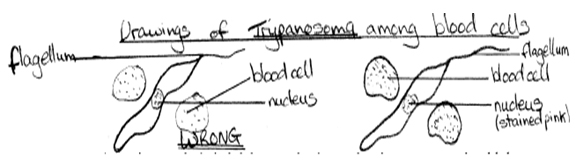 Drawings of Trypanosoma among blood cells
flagellum
blood cell
nucleus
WRONG
flagellum
blood cell
nucleus
(stained pink)